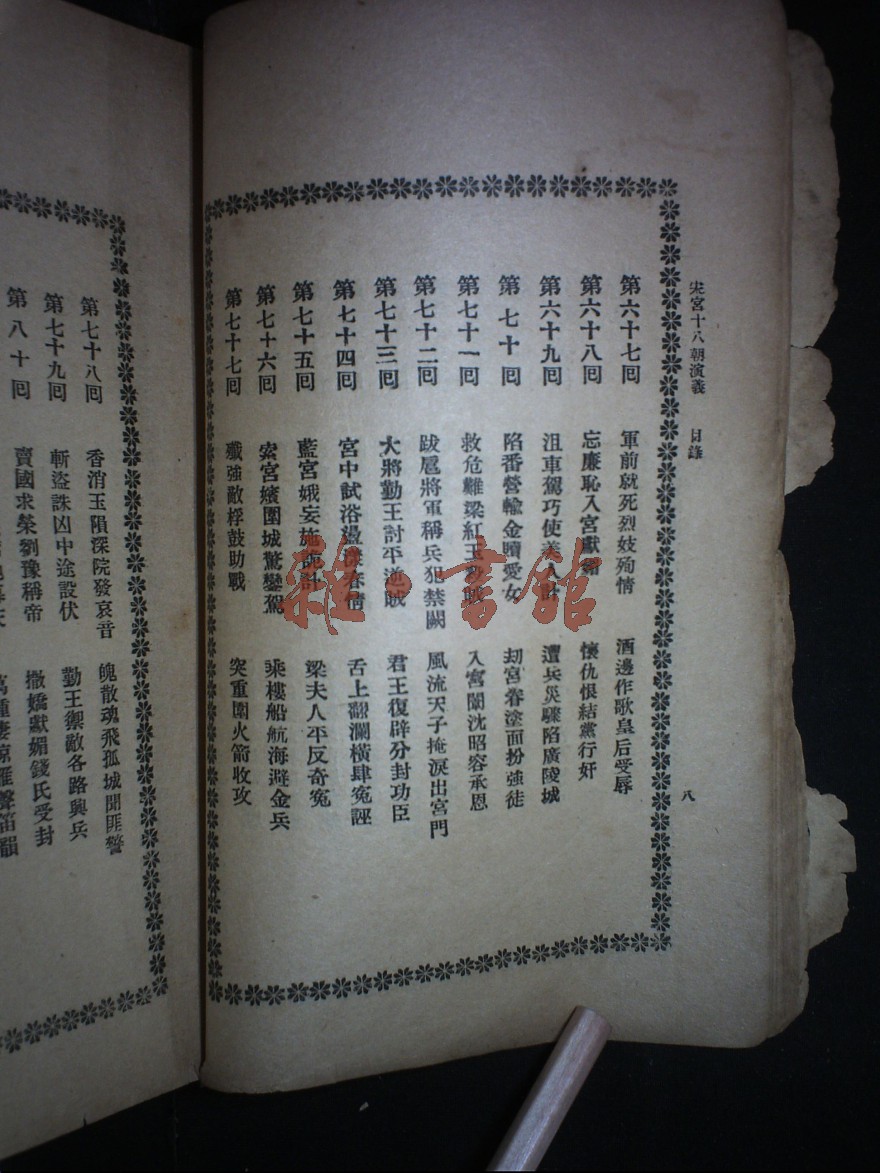 宋宮十八朝演義 目錄 八
第六十七囘 軍前就死烈妓殉情 酒邊作歌皇后受辱
第六十八囘 忘廉恥入宮獻 懷仇恨結黨行奸
第六十九囘 沮車駕巧使美人計 遭兵災驟陷廣陵城
第七十囘 陷番營輸金贖愛女 刧宮眷塗面扮強徒
第七十一囘 救危難梁紅玉 賊 入宮闈沈昭容承恩
第七十二囘 跋扈將軍稱兵犯禁闕 風流天子掩淚出宮門
第七十三囘 大將勤王討平逆賊 君王復辟分封功臣
第七十四囘 宮中試浴 春情 舌上翻瀾橫肆寃誣
第七十五囘 藍宮娥妄施詭計 梁夫人平反奇寃
第七十六囘 索宮嬪圍城驚鑾駕 乘樓船航海避金兵
第七十七囘 殲強敵桴鼓助戰 突重圍火箭收攻
第七十八囘 香消玉隕深院發哀音 魄散魂飛孤城聞匪警
第七十九囘 斬盜誅凶中途設伏 勤王禦敵各路興兵
第八十囘 賣國求榮劉豫稱帝 撒嬌獻媚錢氏受封
雁聲笛韻
雜·書館